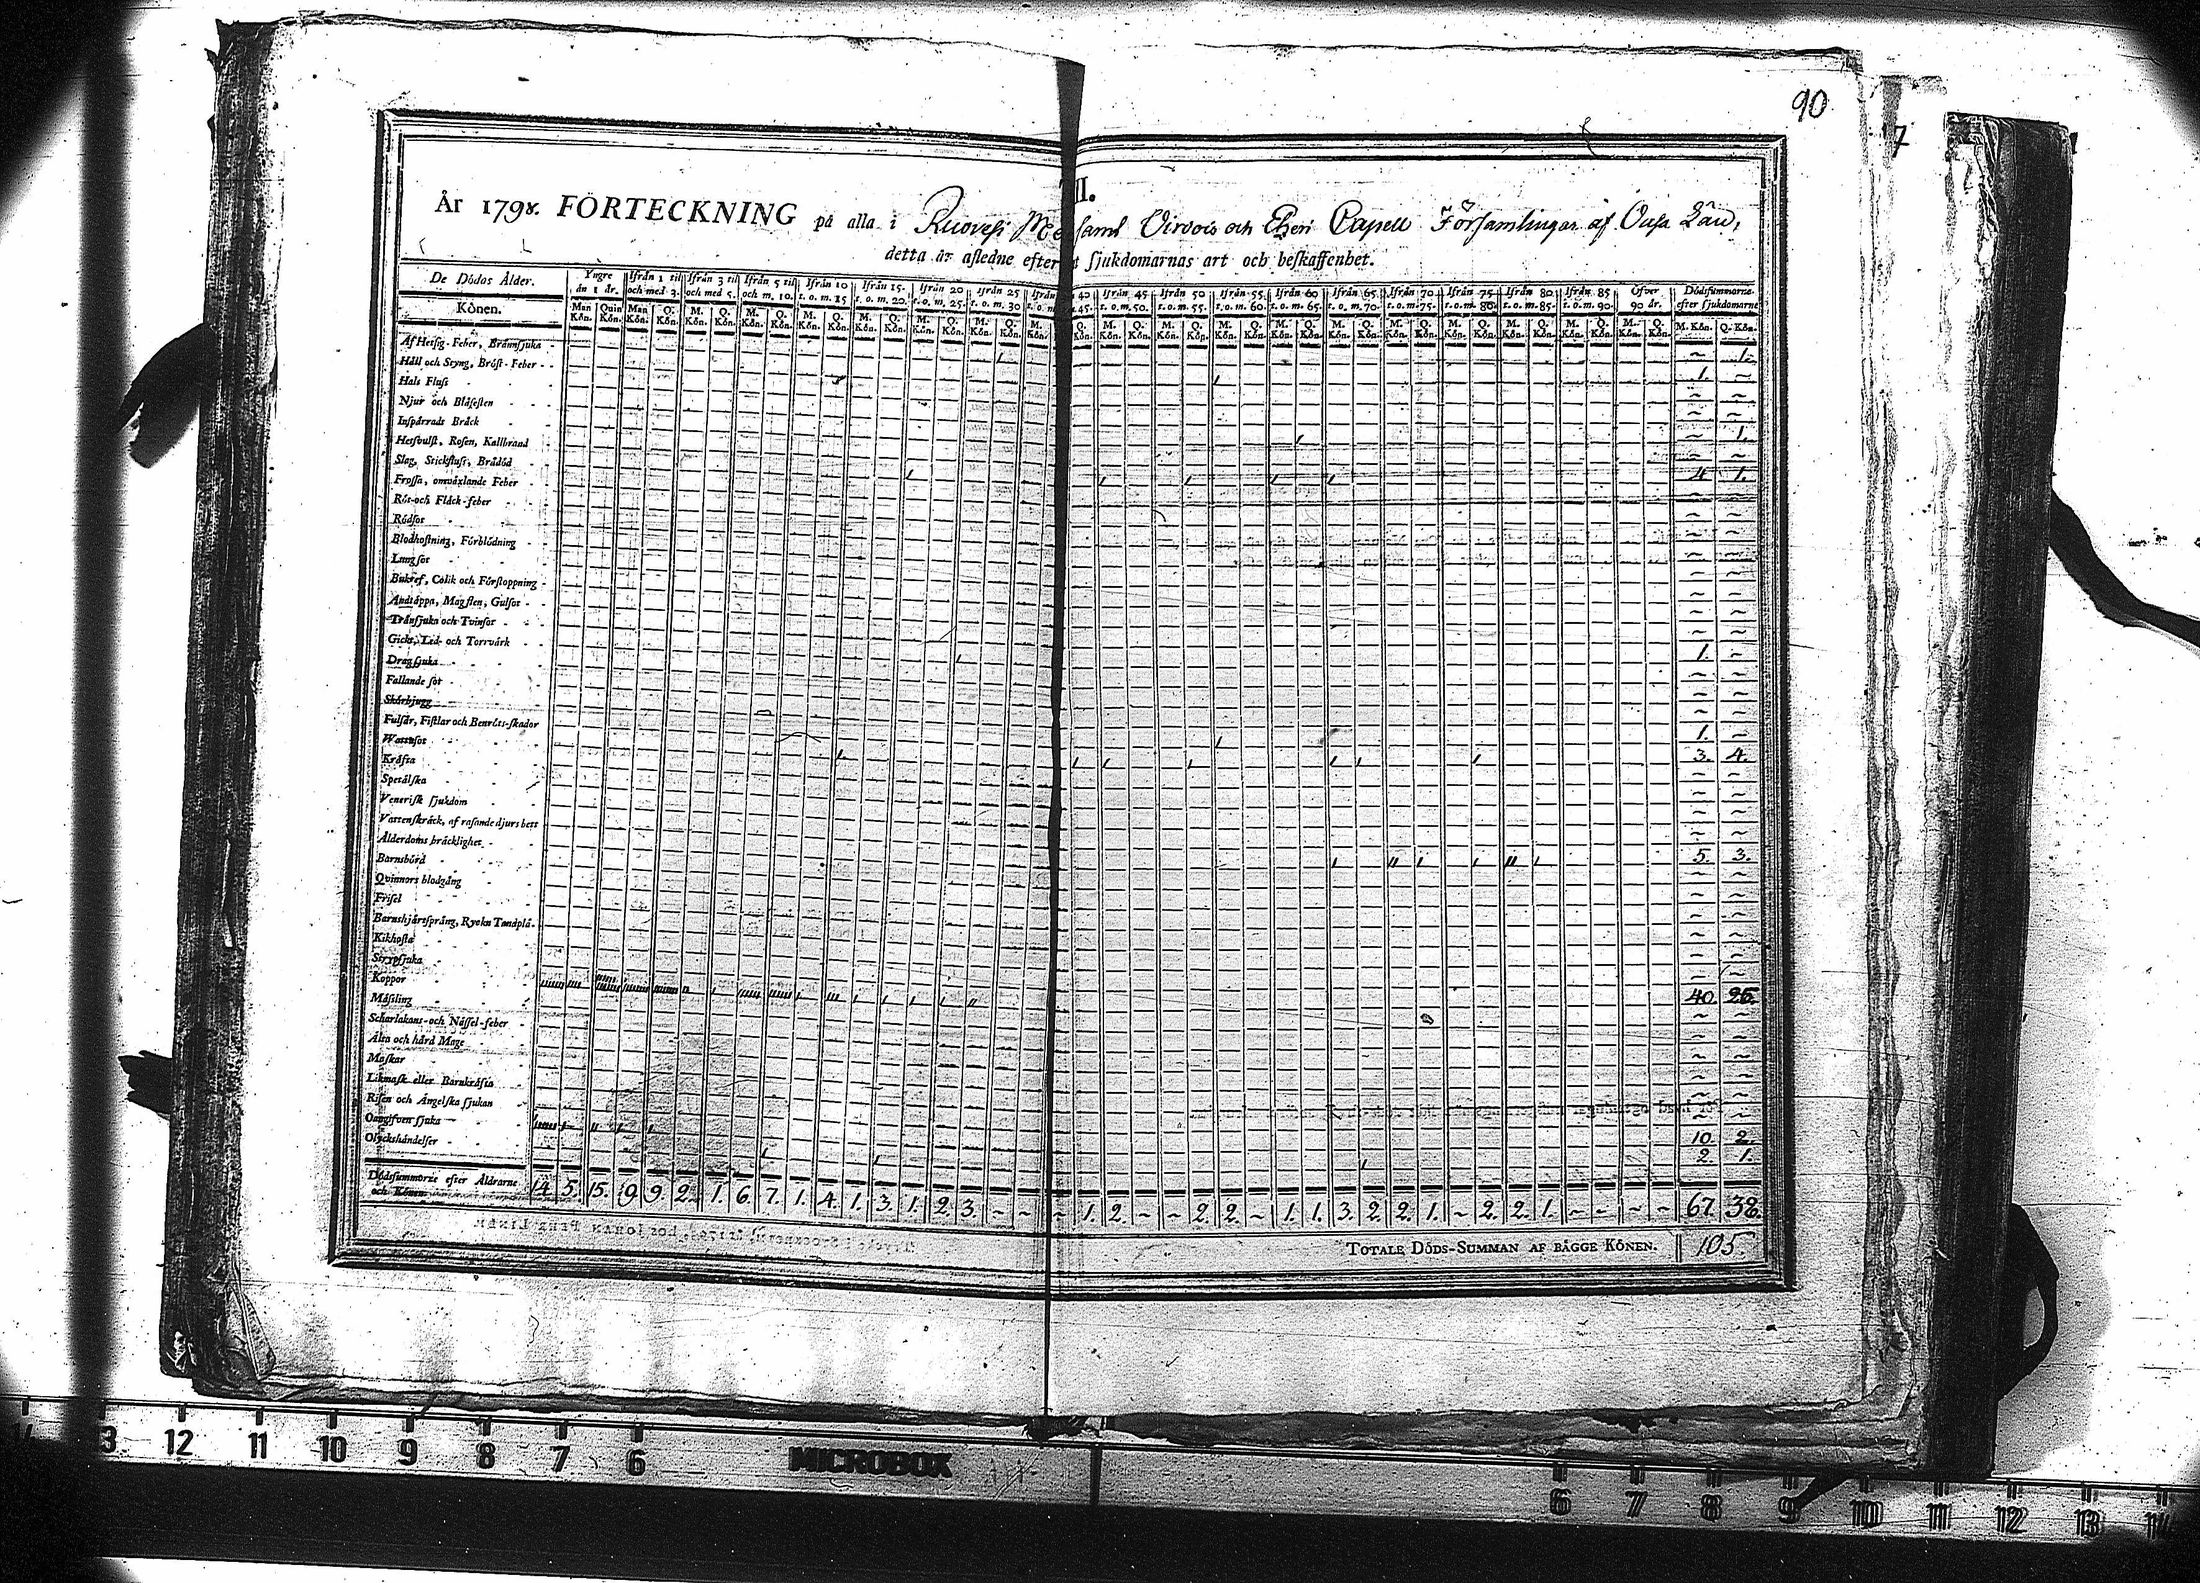 90
7
II.
År 1798. FÖRTECKNING på alla i Ruovesi samt Virdois och Capell Församlingar af Vasa Län,
detta år afledne efter sjukdomarnas art och beskaffenhet.
De Dödas Ålder. Yngre än 1 år. Ifrån 1 til och med 3. Ifrån 3 til och med 5. Ifrån 5 til och m. 10. Ifrån 10 t. o. m. 15 Ifrån 15 t. o. m. 20. Ifrån 20 t. o. m. 25. Ifrån 25 t. o. m. 30 Ifrån 40 45. Ifrån 45 t. o. m. 50. Ifrån 50 t. o. m. 55. Ifrån 55 t. o. m. 60. Ifrån 60 t. o. m. 65. Ifrån 65 t. o. m. 70. Ifrån 70 t. o. m. 75. Ifrån 75 t. o. m. 80. Ifrån 80 t. o. m. 85. Ifrån 85 t. o. m. 90. Öfver 90 år. Dödssummorne efter sjukdomarne
Könen. Man Kön. Quin Kön. Man Kön. Q. Kön. M. Kön. Q. Kön. M. Kön. Q. Kön. M. Kön. Q. Kön. M. Kön. Q. Kön. M. Kön. Q. Kön. M. Kön. Q. Kön. M. Kön. Q. Kön. M. Kön. Q. Kön. M. Kön. Q. Kön. M. Kön. Q. Kön. M. Kön. Q. Kön. M. Kön. Q. Kön. M. Kön. Q. Kön. M. Kön. Q. Kön. M. Kön. Q. Kön. M. Kön. Q. Kön. M. Kön. Q. Kön. M. Kön. Q. Kön.
Af Hetsig-Feber, Brännsjuka ~ 1.
Håll och Styng, Bröst-Feber 1. ~
Hals Fluss ~ ~
Njur och Blåsesten ~ ~
Inspärrads Bråck ~ 1.
Hetsvulst, Rosen, Kallbrand ~ ~
Slag, Stickfluss, Brådöd 4 1.
Frossa, omväxlande Feber ~ ~
Röt-och Fläck-feber ~ ~
Rödsot ~ ~
Blodhostning, Förblödning ~ ~
Lungsot ~ ~
Bukref, Colik och Förstoppning ~ ~
Andtäppa, Magsten, Gulsot ~ ~
Trånsjuka och Tvinsot ~ ~
Gickt, Led- och Torrvärk 1. ~
Dragsjuka ~ ~
Fallande sot ~ ~
Skörbjugg ~ ~
Fulsår, Fistlar och Benröts-skador 1. ~
Wattusot 3. 4.
Kräfta ~ ~
Spetälska ~ ~
Venerisk sjukdom ~ ~
Vattenskräck, af rasande djurs bett ~ ~
Ålderdoms bräcklighet 5. 3.
Barnsbörd ~ ~
Qvinnors blodgång ~ ~
Frisel ~ ~
Barnshjärtsprång, Ryck Tandplå. ~ ~
Kikhosta ~ ~
Strypsjuka ~ ~
Koppor 40. 25.
Mässling ~ ~
Scharlakans-och Nässel-feber ~ ~
Älta och hård Mage ~ ~
Maskar ~ ~
Likmask eller Barnkräfta ~ ~
Risen och Ängelska sjukan ~ ~
Oangifven sjuka 10. 2.
Olyckshändelser 2. 1.
Dödssummorne efter Åldrarne och Könen 14. 5. 15. 9. 9. 2. 1. 6. 7. 1. 4. 1. 3. 1. 2. 3. ~ ~ ~ 1. 2. ~ ~ 2. 2. ~ 1. 1. 3. 2. 2. 1. ~ 2. 2. 1. ~ ~ ~ ~ 67. 38.
TOTALE DÖDS-SUMMAN AF BÄGGE KÖNEN. 105.
13 12 11 10 9 8 7 6 MICROBOX 6 7 8 9 10 11 12 13 14